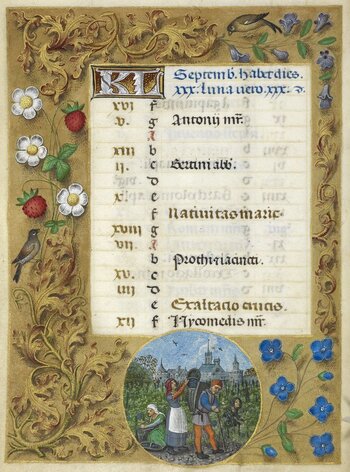 KL Septemb. habet dies
xxx. luna vero. xxx.
xvi f
v. g Antonii mr.
A
xiii b
ii. c Bertini abb.
d
x. e
f Nativitas marie
xviii g
vii A
b Prothi iacincti.
xv. c
iiii d
e Exaltacio crucis.
xii f Nycomedis mr.